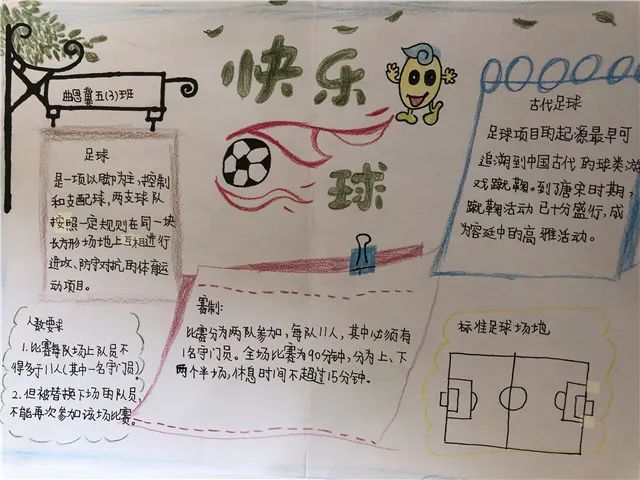 快乐
球
曲恩冀五(3)班
足球
是一项以脚为主,控制
和支配球,两支球队
按照一定规则在同一块
长方形场地上互相进行
进攻、防守对抗的体育运
动项目。
古代足球
足球项目的起源最早可
追溯到中国古代的球类游
戏蹴鞠。到了唐宋时期,
蹴鞠活动已十分盛行,成
为宫廷中的高雅活动。
人数要求
1.比赛每队场上队员不
得多于11人(其中一名守门员)
2.但被替换下场的队员,
不能再次参加该场比赛。
赛制:
比赛分为两队参加,每队11人,其中必须有
1名守门员。全场比赛为90分钟,分为上、下
两个半场,休息时间不超过15分钟。
标准足球场地